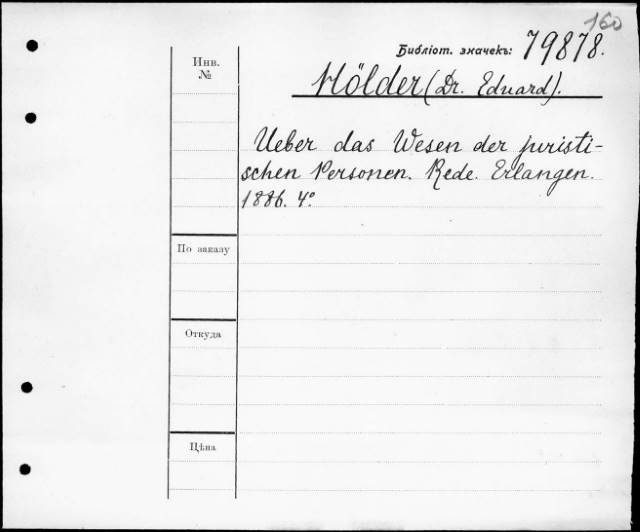 160
Библіот. значекъ: 79878.
Инв.
№
Hölder (Dr. Eduard).
Ueber das Wesen der juristi-
schen Personen. Rede. Erlangen.
1886. 4°
По заказу
Откуда
Цѣна